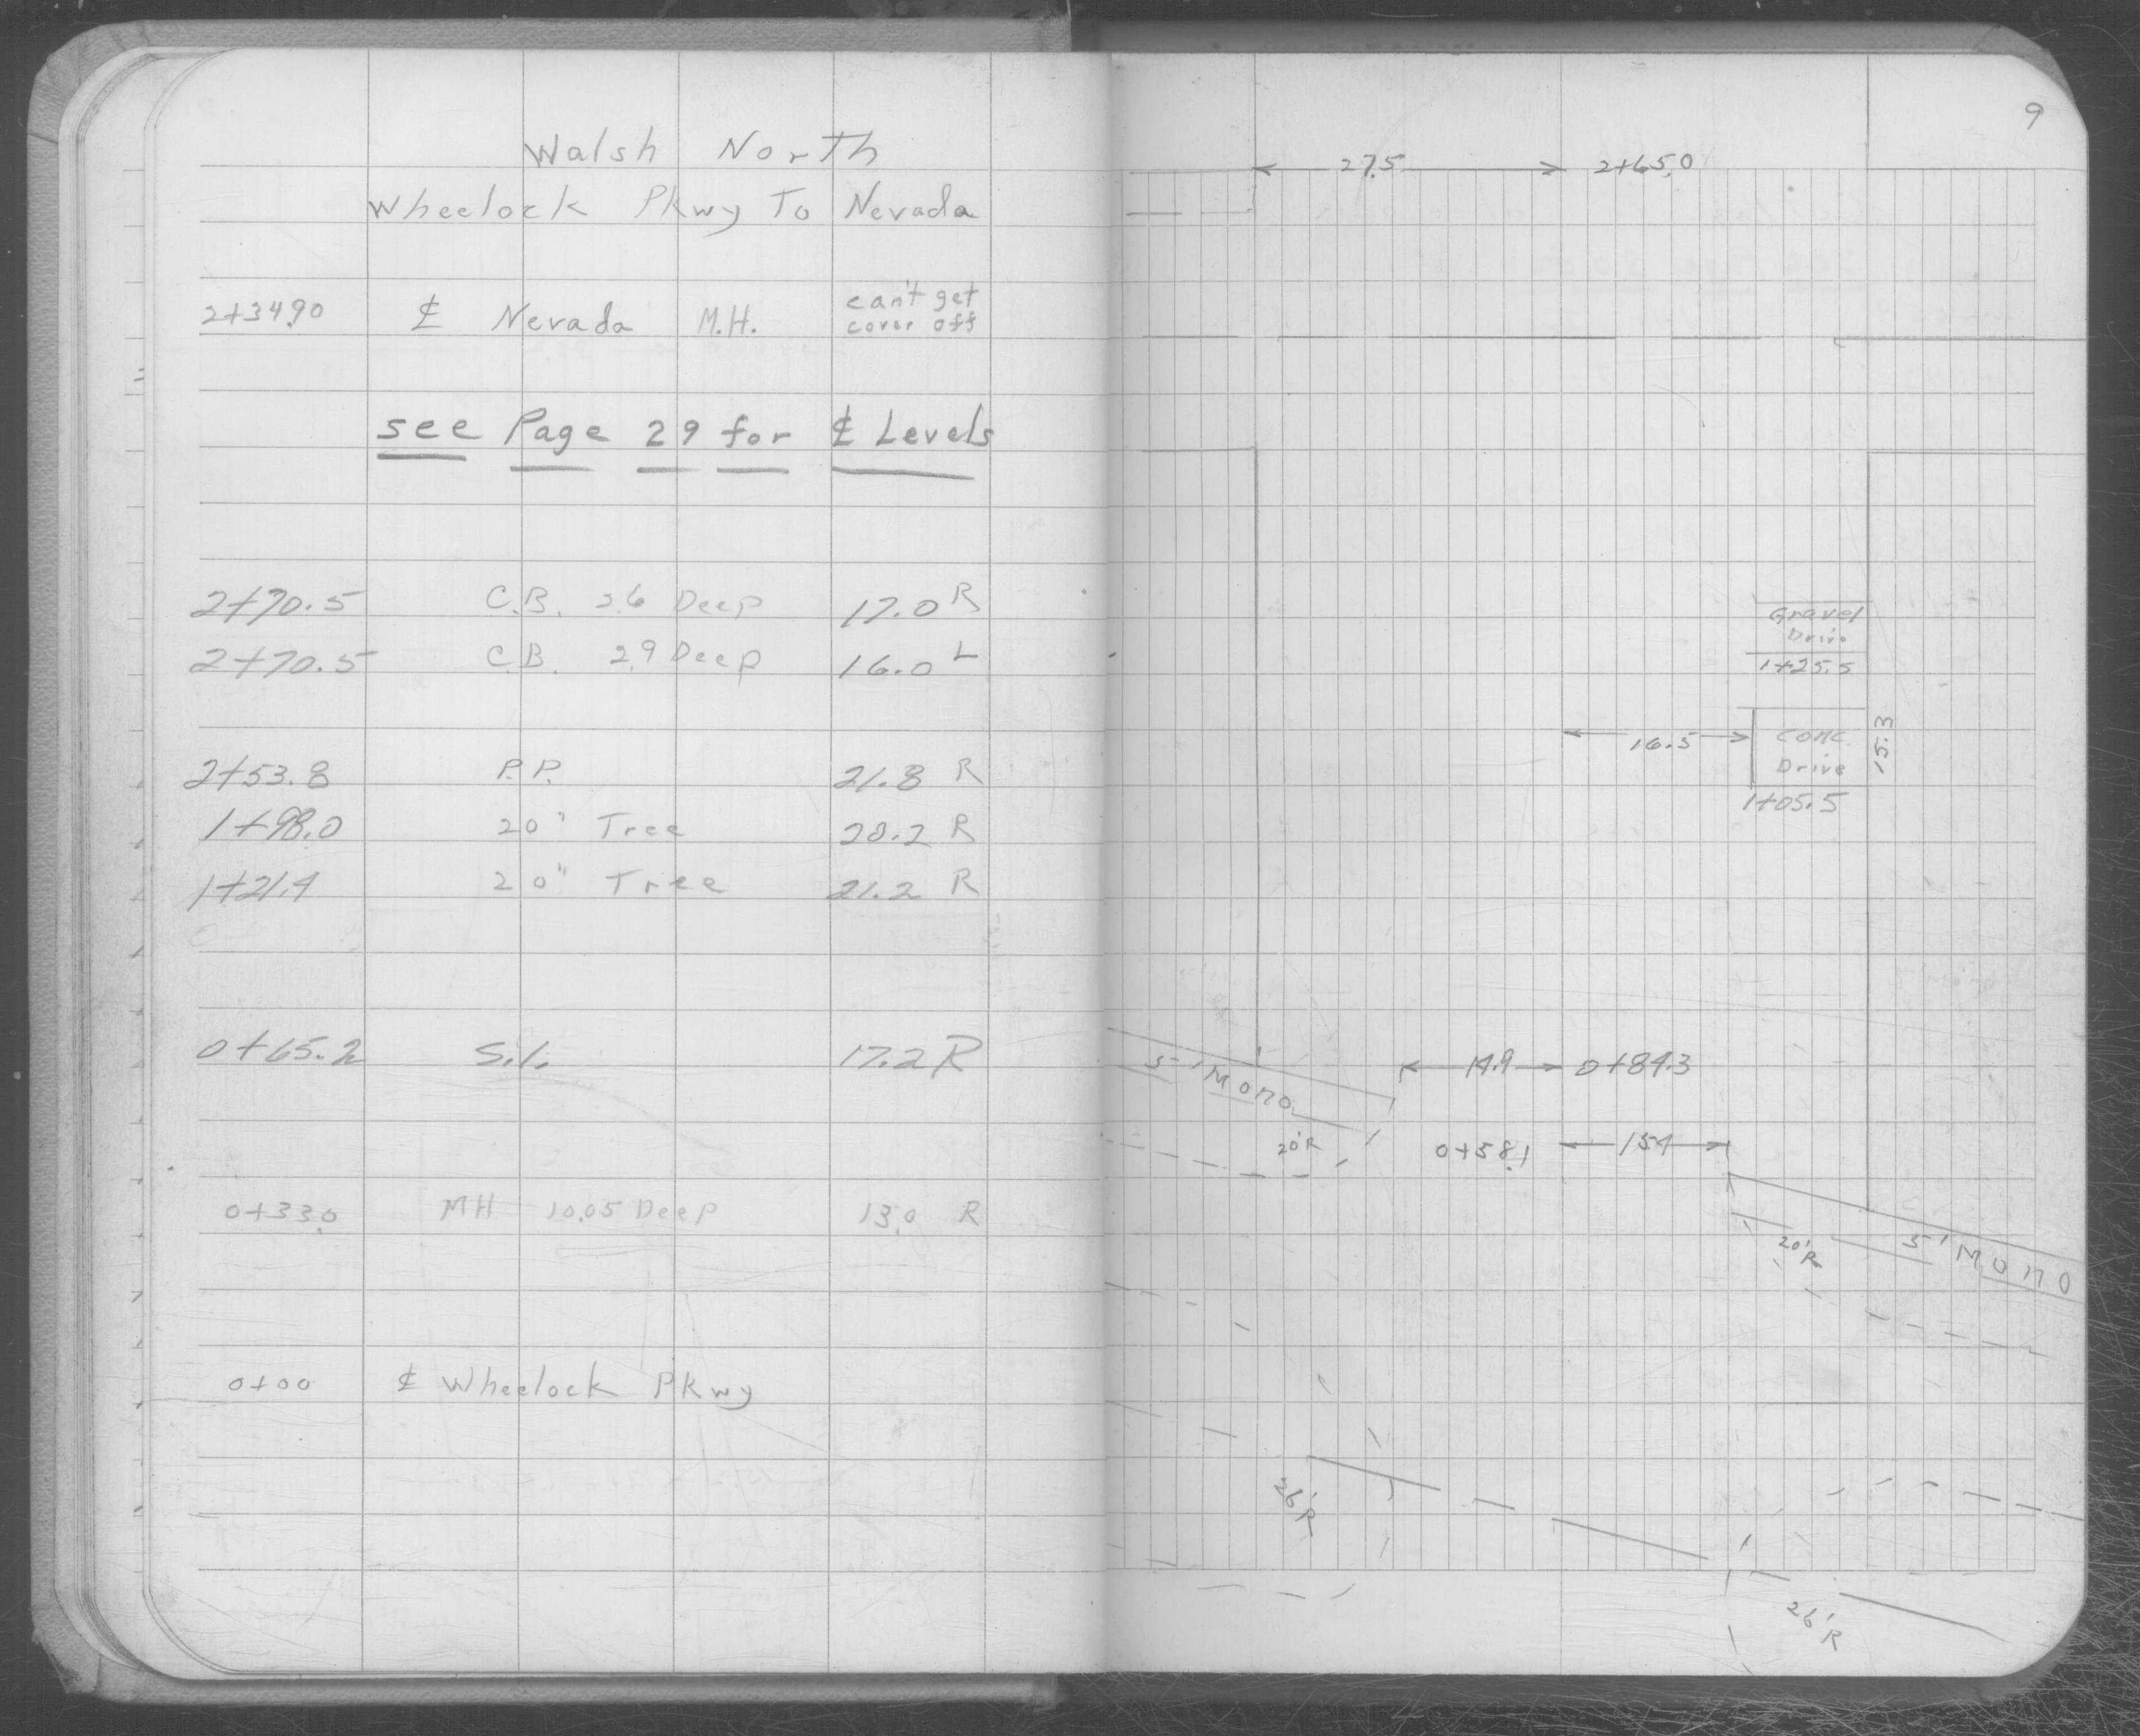 Walsh North
Wheelock Pkwy To Nevada
2+34.90 ℄ Nevada M.H. can't get cover off
see Page 29 for ℄ Levels
2+70.5 C.B. 2.6 Deep 17.0 R
2+70.5 C.B. 2.9 Deep 16.0 L
2+53.8 P.P. 21.8 R
1+98.0 20" Tree 20.2 R
1+21.4 20" Tree 21.2 R
0+65.2 S.L. 17.2 R
0+33.0 MH 10.05 Deep 13.0 R
0+00 ℄ Wheelock Pkwy
9
27.5 2+65.0
Gravel
Drive
1+25.5
16.5 Conc.
Drive
15.3
1+05.5
14.9 0+84.3
5' Mono
20'R
0+58.1 15.4
20'R
5' Mono
26'R
26'R